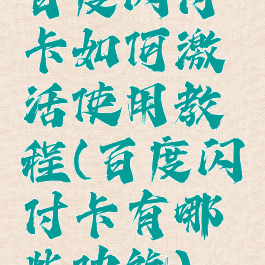 百度闪付
卡如何激
活使用教
程(百度闪
付卡有哪
些功能)